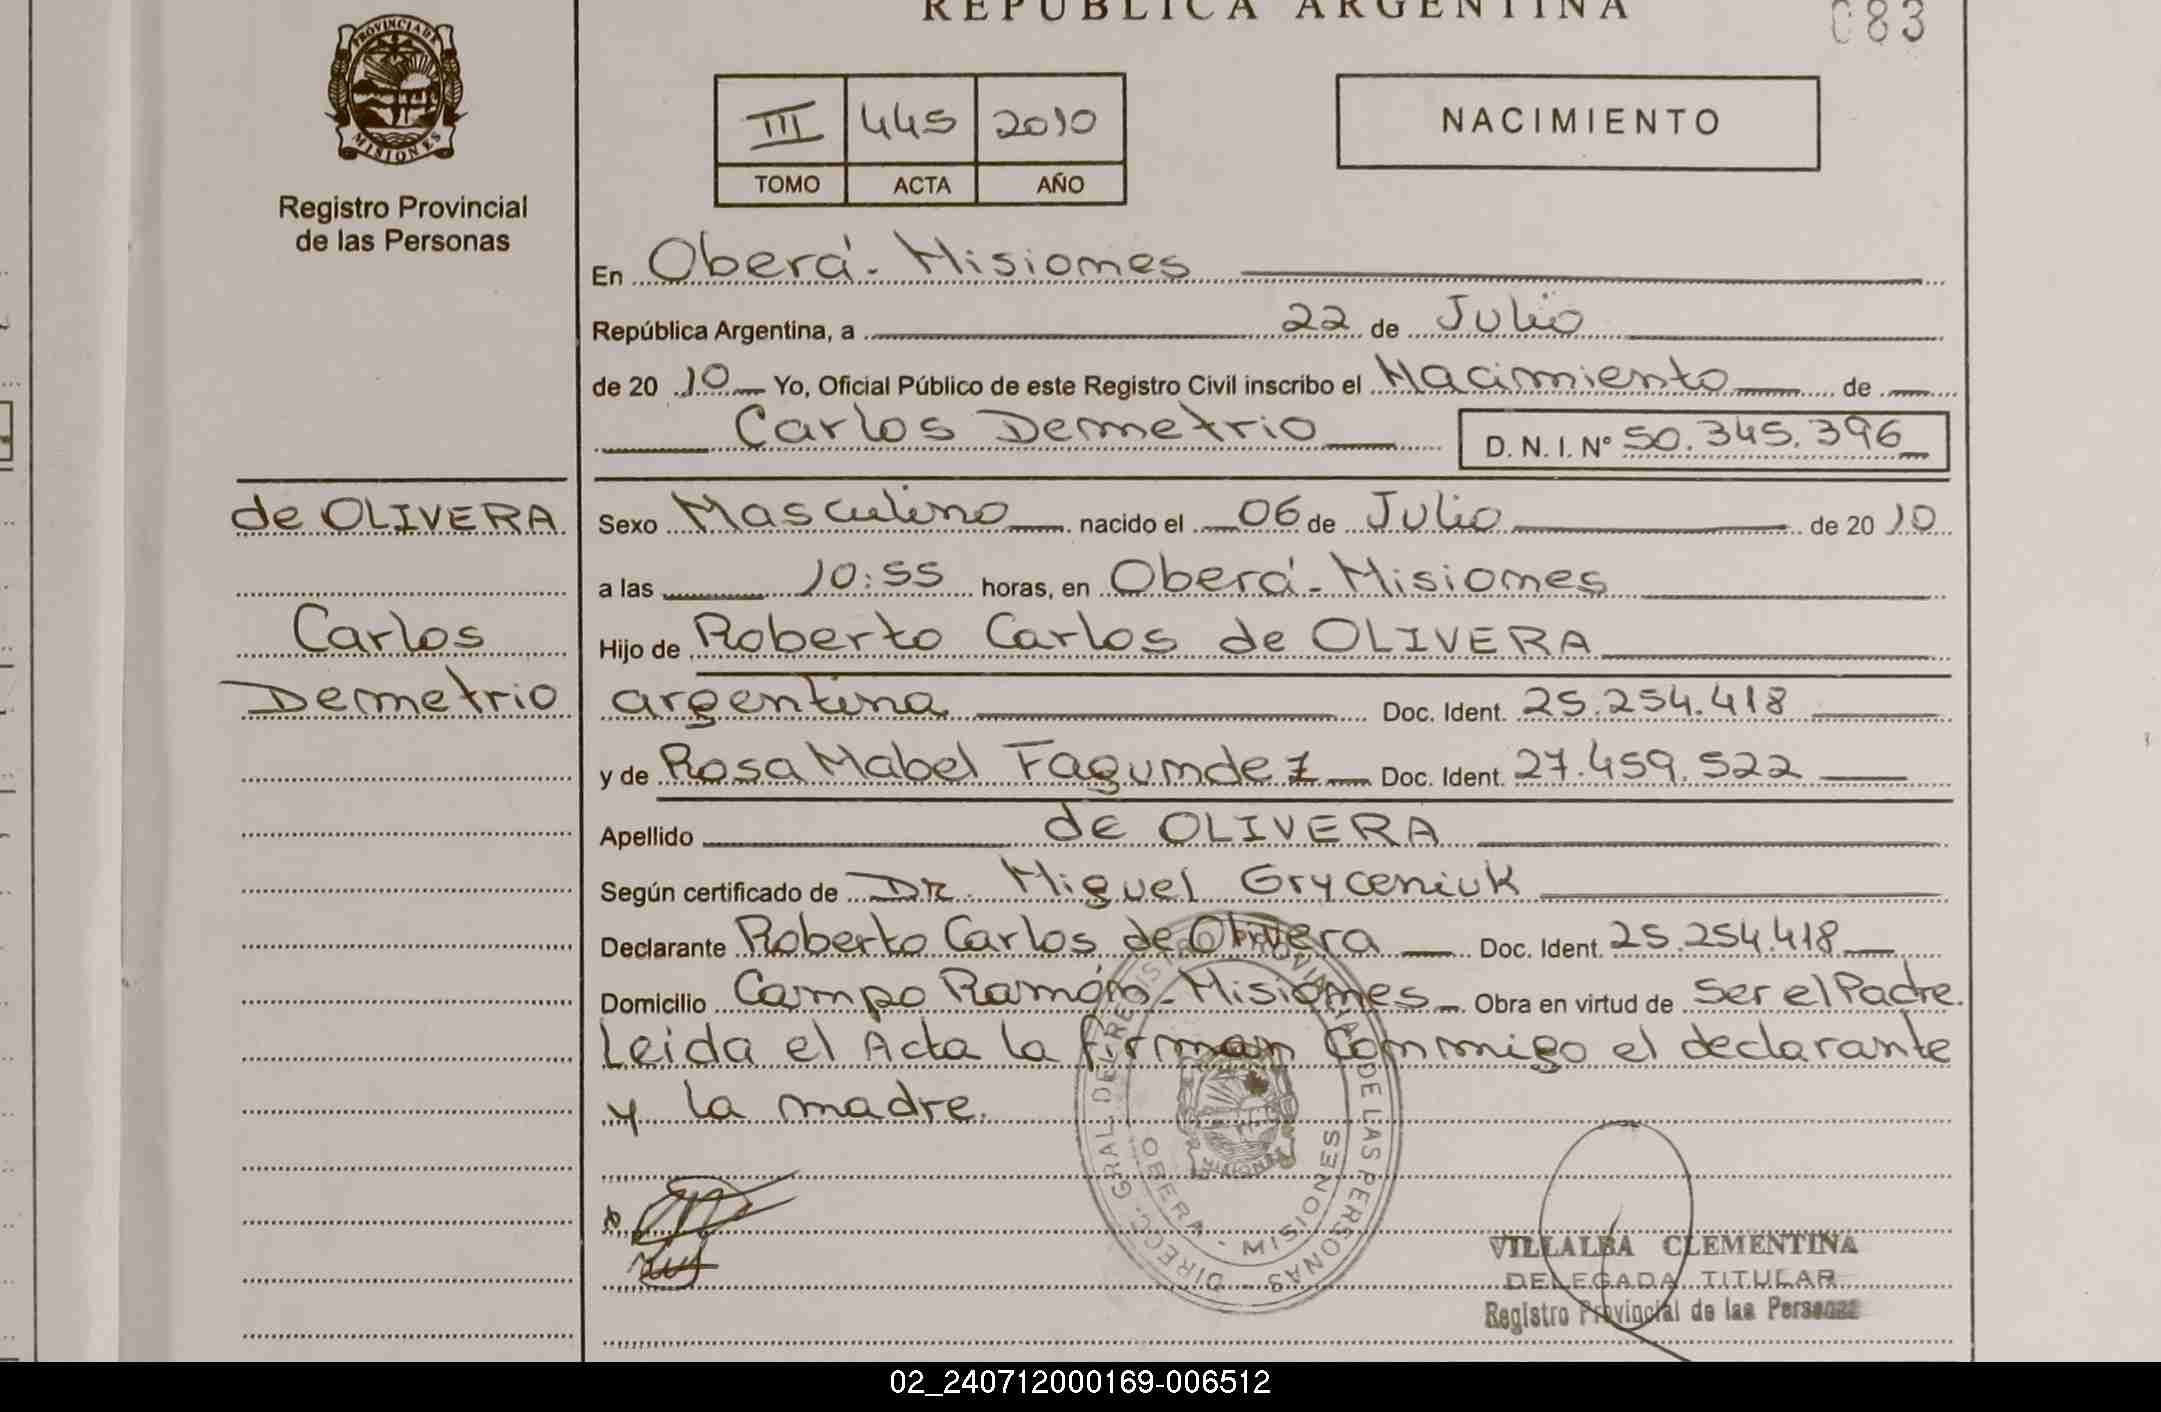 REPUBLICA ARGENTINA
083
PROVINCIA DE
MISIONES
Registro Provincial
de las Personas
III 445 2010
TOMO ACTA AÑO
NACIMIENTO
En Oberá - Misiones
República Argentina, a 22 de Julio
de 20 10 Yo, Oficial Público de este Registro Civil inscribo el Nacimiento de
Carlos Demetrio D. N. I. Nº 50.345.396
de OLIVERA
Carlos
Demetrio
Sexo Masculino nacido el 06 de Julio de 20 10
a las 10:55 horas, en Oberá - Misiones
Hijo de Roberto Carlos de OLIVERA
argentina Doc. Ident. 25.254.418
y de Rosa Mabel Fagundez Doc. Ident. 27.459.522
Apellido de OLIVERA
Según certificado de DR. Miguel Gryceniuk
Declarante Roberto Carlos de Olivera Doc. Ident. 25.254.418
Domicilio Campo Ramón - Misiones Obra en virtud de ser el Padre.
Leida el Acta la firman Conmigo el declarante
y la madre.
DIRECC. GRAL. DEL REGISTRO PROVINCIAL DE LAS PERSONAS
OBERA - MISIONES
MISIONES
VILLALBA CLEMENTINA
DELEGADA TITULAR
Registro Provincial de las Personas
02_240712000169-006512